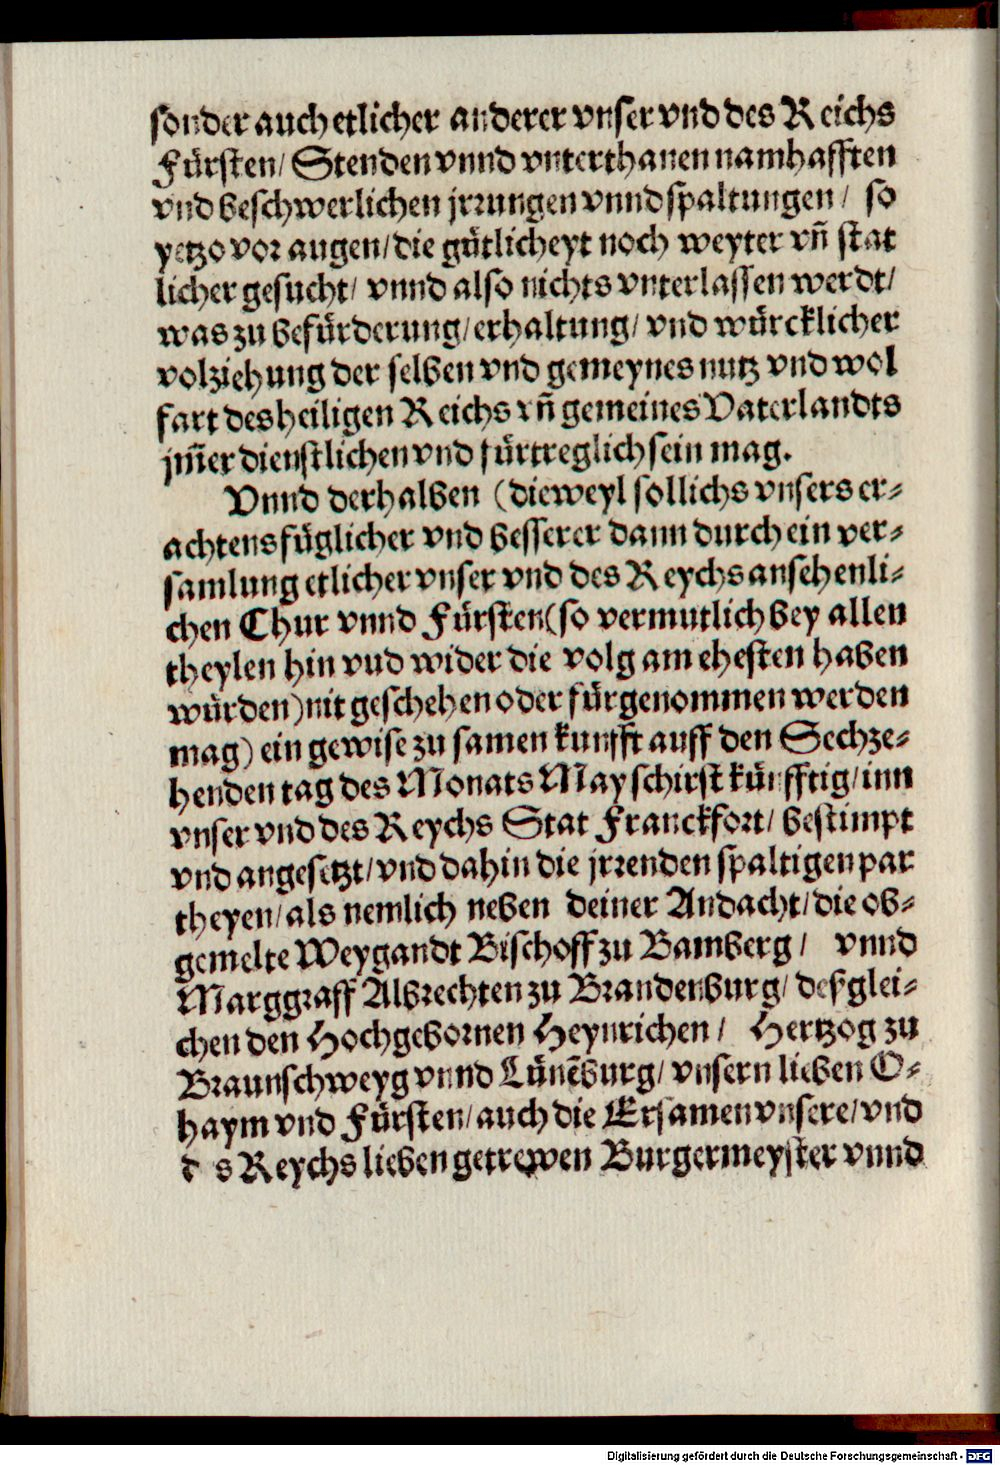 sonder auch etlicher anderer vnser vnd des Reichs
Fürsten/ Stenden vnnd vnterthanen namhafften
vnd beschwerlichen jrrungen vnnd spaltungen/ so
yetzo vor augen/ die gütlicheyt noch weyter vñ stat
licher gesucht/ vnnd also nichts vnterlassen werdt/
was zu befürderung/ erhaltung/ vnd würcklicher
volziehung der selben vnd gemeynes nutz vnd wol
fart des heiligen Reichs vñ gemeines Vaterlandts
jm̃er dienstlichen vnd fürtreglich sein mag.
Vnnd derhalben (dieweyl sollichs vnsers er-
achtens füglicher vnd besserer dann durch ein ver-
samlung etlicher vnser vnd des Reychs ansehenli-
chen Chur vnnd Fürsten (so vermutlich bey allen
theylen hin vnd wider die volg am ehesten haben
würden) nit geschehen oder fürgenommen werden
mag) ein gewise zu samen kunfft auff den Sechze-
henden tag des Monats May schirst künfftig/ inn
vnser vnd des Reychs Stat Franckfort/ bestimpt
vnd angesetzt/ vnd dahin die jrrenden spaltigen par
theyen/ als nemlich neben deiner Andacht/ die ob-
gemelte Weygandt Bischoff zu Bamberg/ vnnd
Marggraff Albrechten zu Brandenburg/ deßglei-
chen den Hochgebornen Heynrichen/ Hertzog zu
Braunschweyg vnnd Lünẽburg/ vnsern lieben O-
haym vnd Fürsten/ auch die Ersamen vnsere/ vnd
d s Reychs lieben getrewen Burgermeyster vnnd
Digitalisierung gefördert durch die Deutsche Forschungsgemeinschaft - DFG